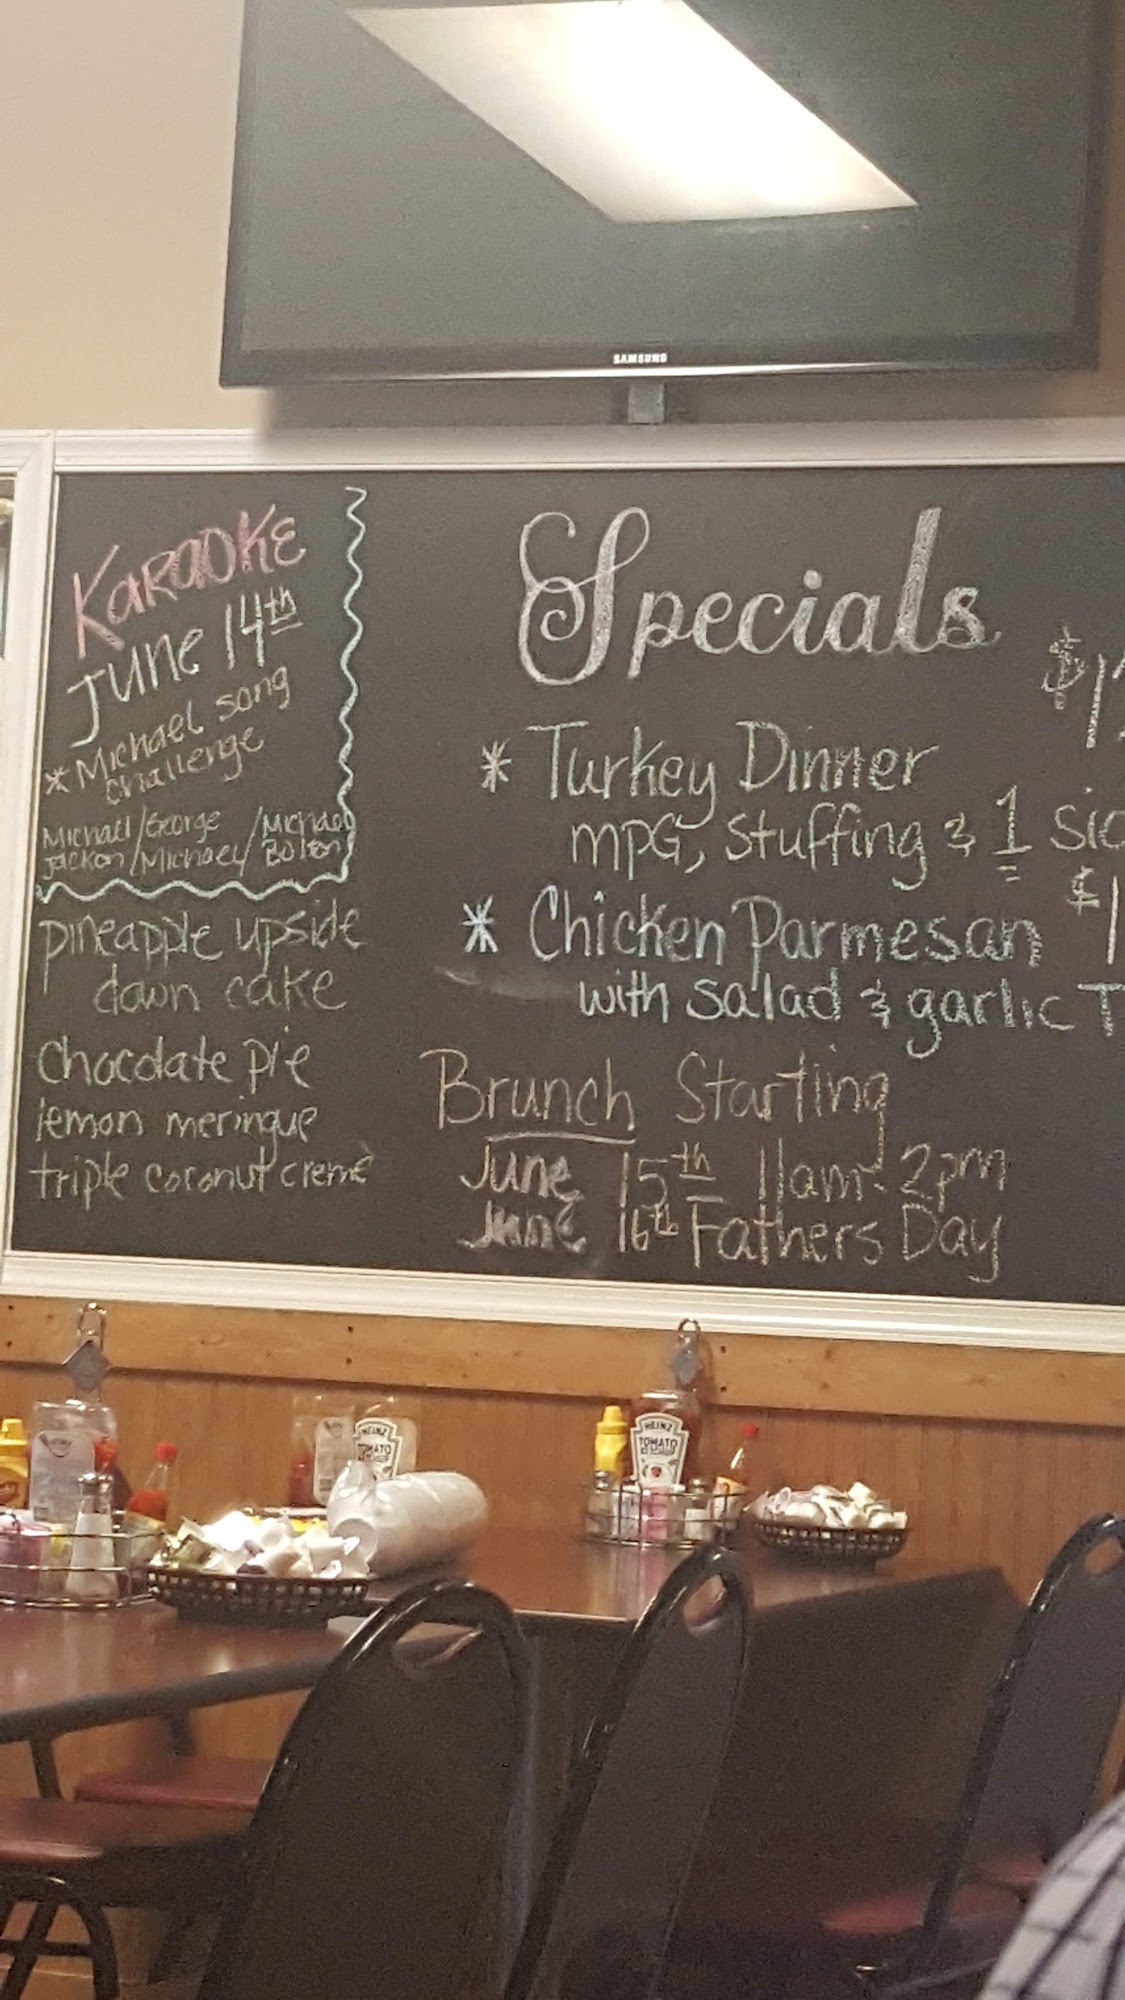 SAMSUNG
KARAOKE
JUNE 14th
*Michael song
challenge
Michael/George/Michael
Jackon/Michael/Bolton
pineapple upside
down cake
chocolate pie
lemon meringue
triple coconut creme
Specials
* Turkey Dinner
MPG, Stuffing & 1
* Chicken Parmesan
with salad & garlic T
Brunch Starting
June 15th 11am-2pm
June 16th Fathers Day
HEINZ
TOMATO
HEINZ
TOMATO